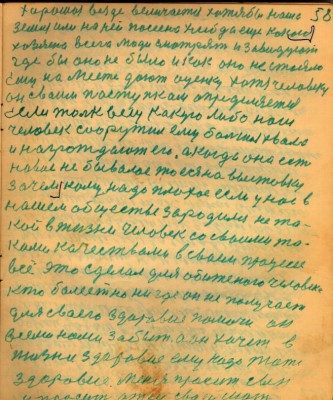 58
хорошая везде величается хотябы наша
земля или на ней посеено когда еще какой
хозяено всего люди смотрят и завидуют
где бы оно не было и как оно не стояло
ему на месте дают оценку хотя человеку
он своим поступкам определяется
если толк вещ какую либо наш
человек соорутил ему большая хвала
и награждают его. а когда она сот
навые не бывалое то есть на выставку
зачем кому надо плохое если у нас в
нашем обществе зародился не та
кой в жизни человек со своими та
кими качествами в своем процессе
всё это сделал для обиженого человек
кто болеет но ни где он не получает
для своего здоровье помочи он
всеми нами забыт а он хочет в
жизни здоровие ему надо
здоровие